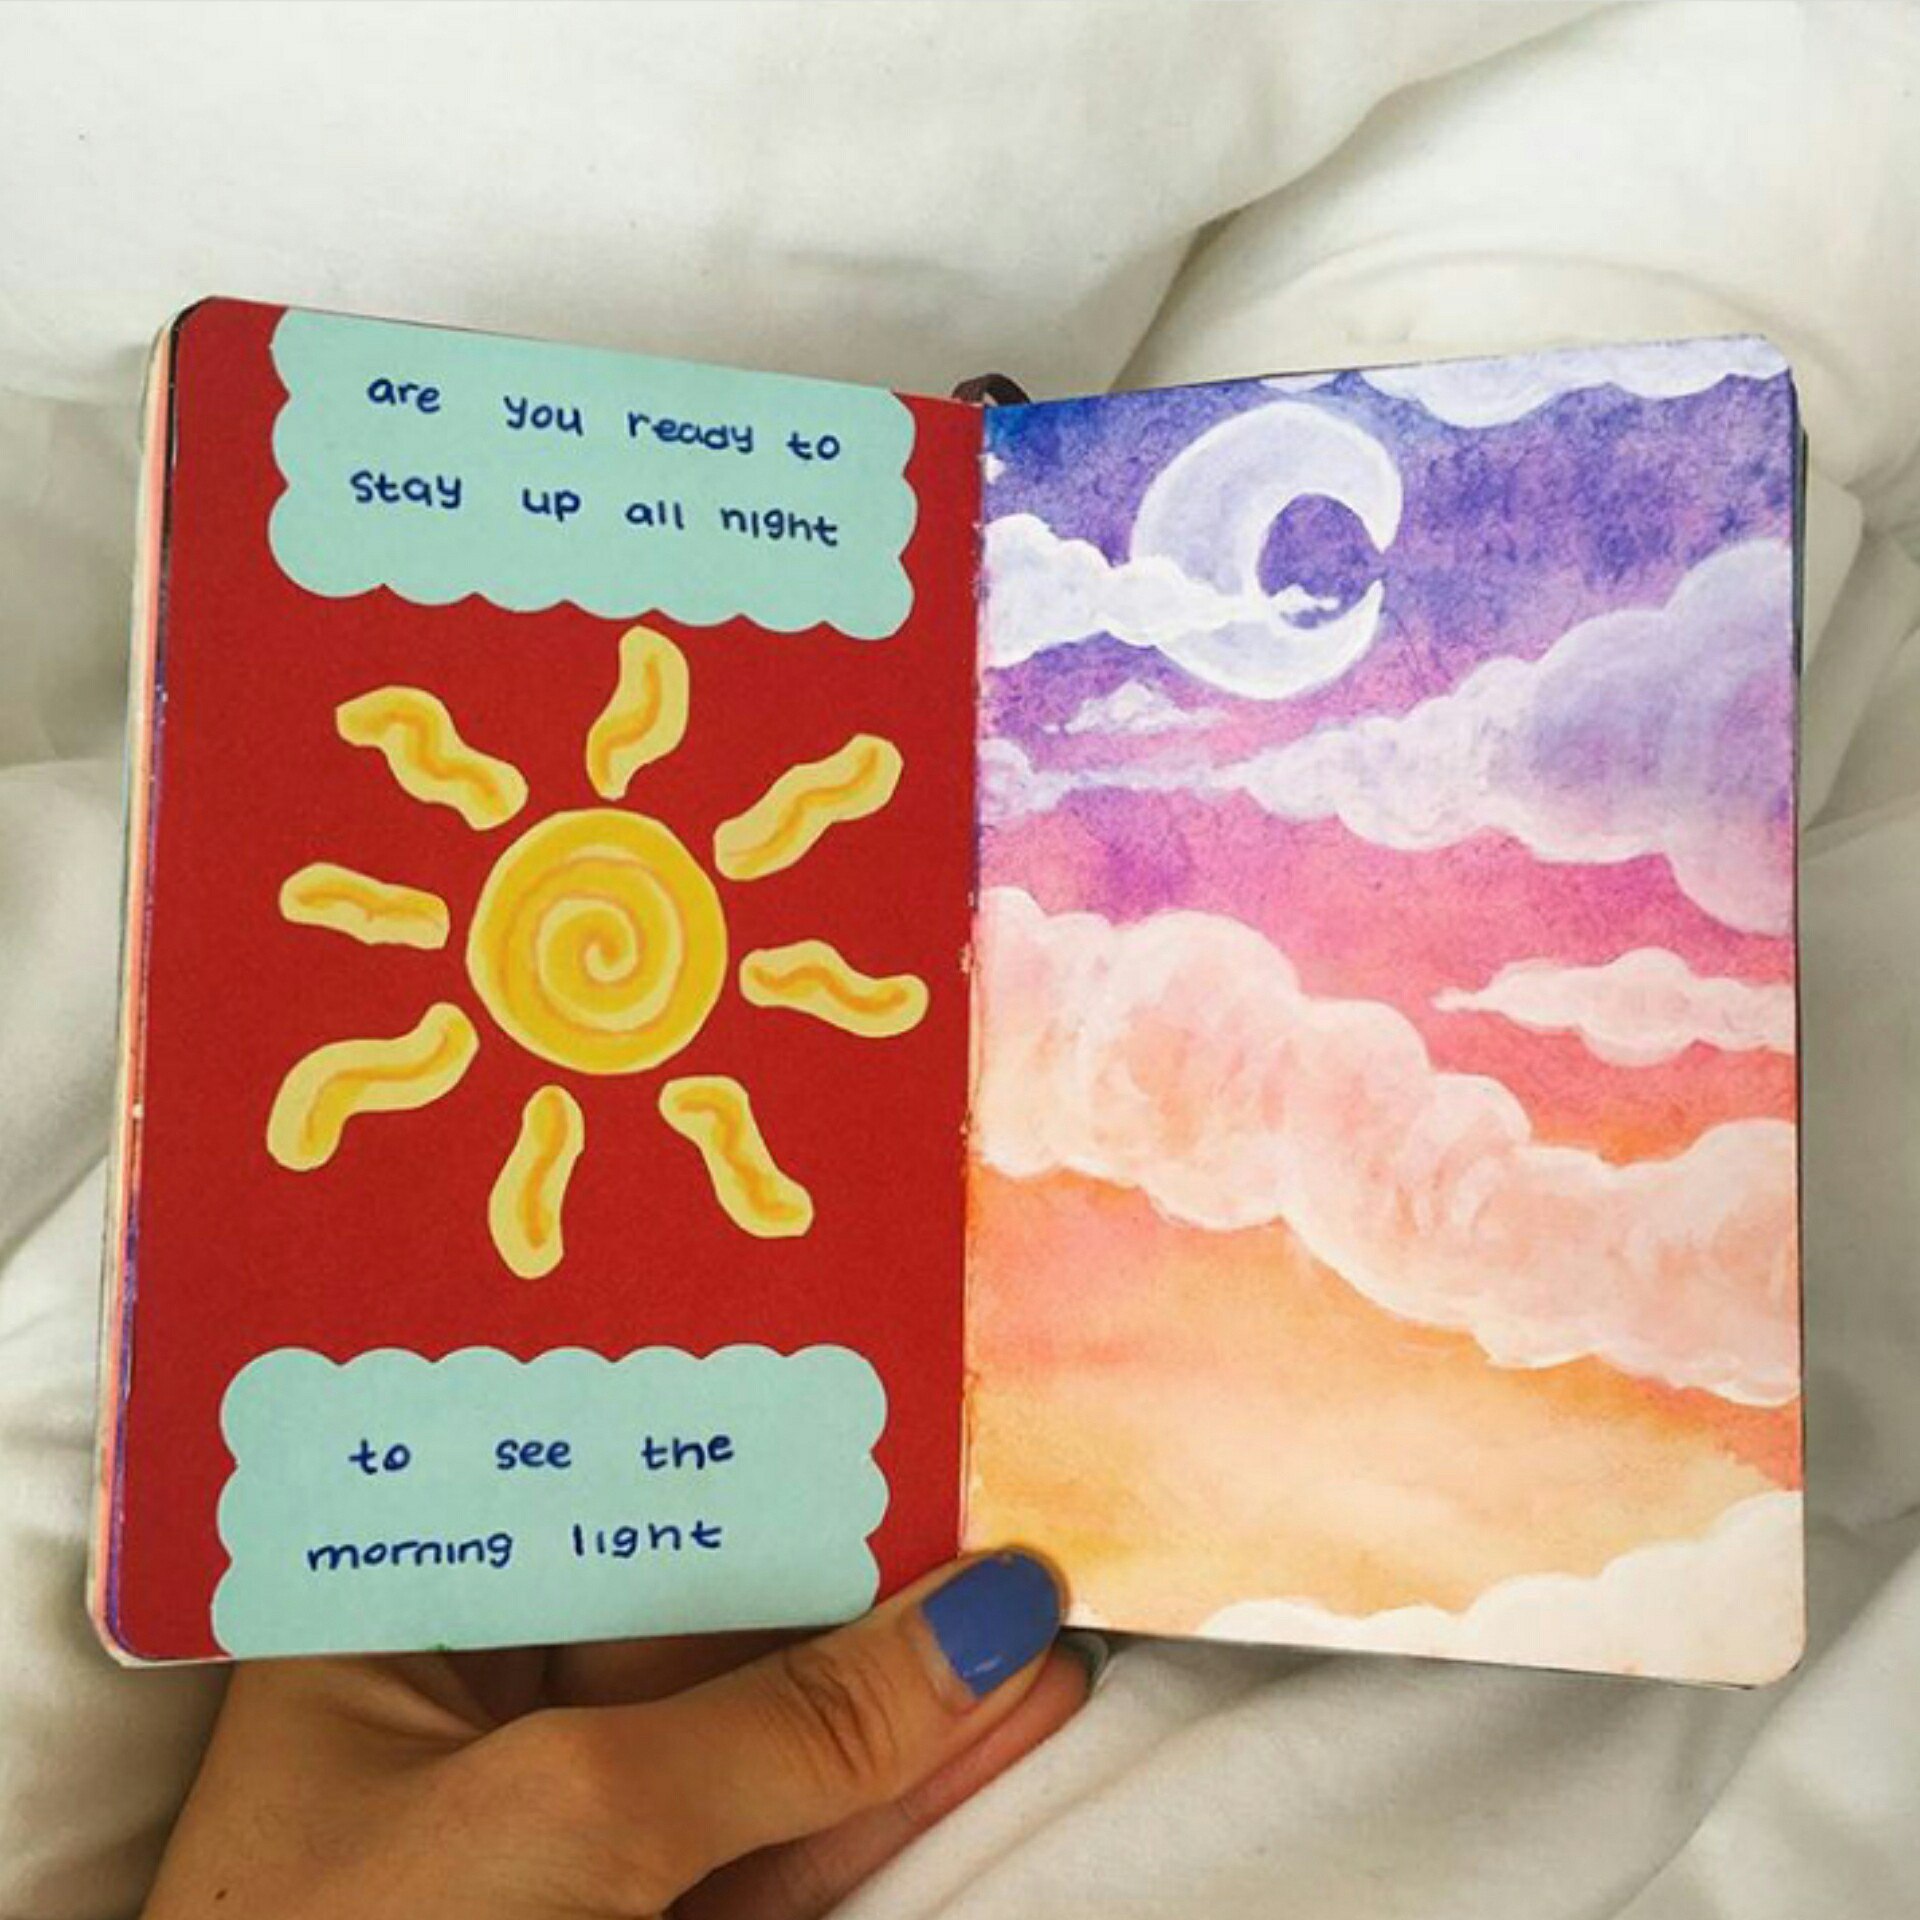 are you ready to
stay up all night
to see the
morning light